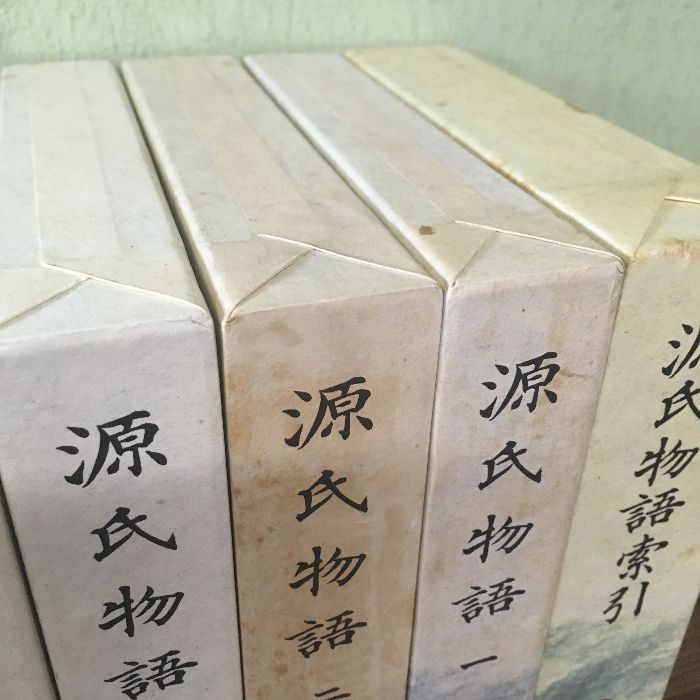 源氏物語索引
源氏物語 一
源氏物語 二
源氏物語